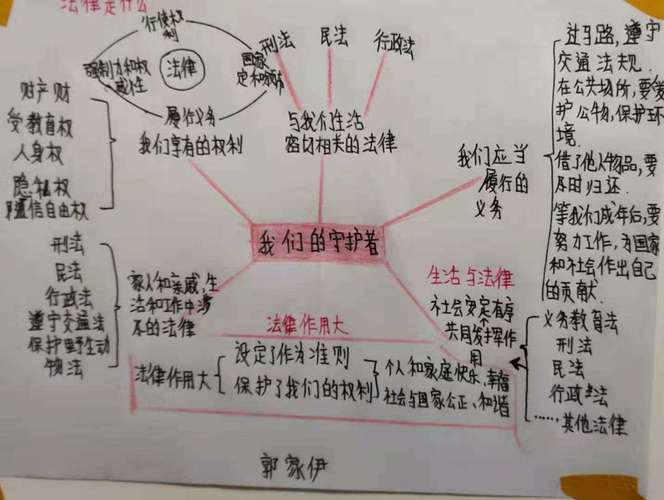 法律是什么
行使权
利
强制力和权
威性
法律
国家
履行义务
刑法
民法
行政法
财产财
受教育权
人身权
隐私权
通信自由权
我们享有的权利
与我们生活
密切相关的法律
我们应当
履行的
义务
过马路,遵宁
交通法规.
在公共场所,要爱
护公物,保护环
境.
借了他人物品,要
及时归还.
等我们成年后,要
努力工作,为国家
和社会作出自己
的贡献.
我们的守护者
刑法
民法
行政法
遵宁交通法
保护野生动
物法
家人和亲戚,生
活和工作中涉
不的法律
生活与法律
社会安定有序
共同发挥作
用
义务教育法
刑法
民法
行政法
……其他法律
法律作用大
法律作用大
设定了作为准则
保护了我们的权利
个人和家庭快乐,幸福
社会与国家公正、和谐
郭家伊